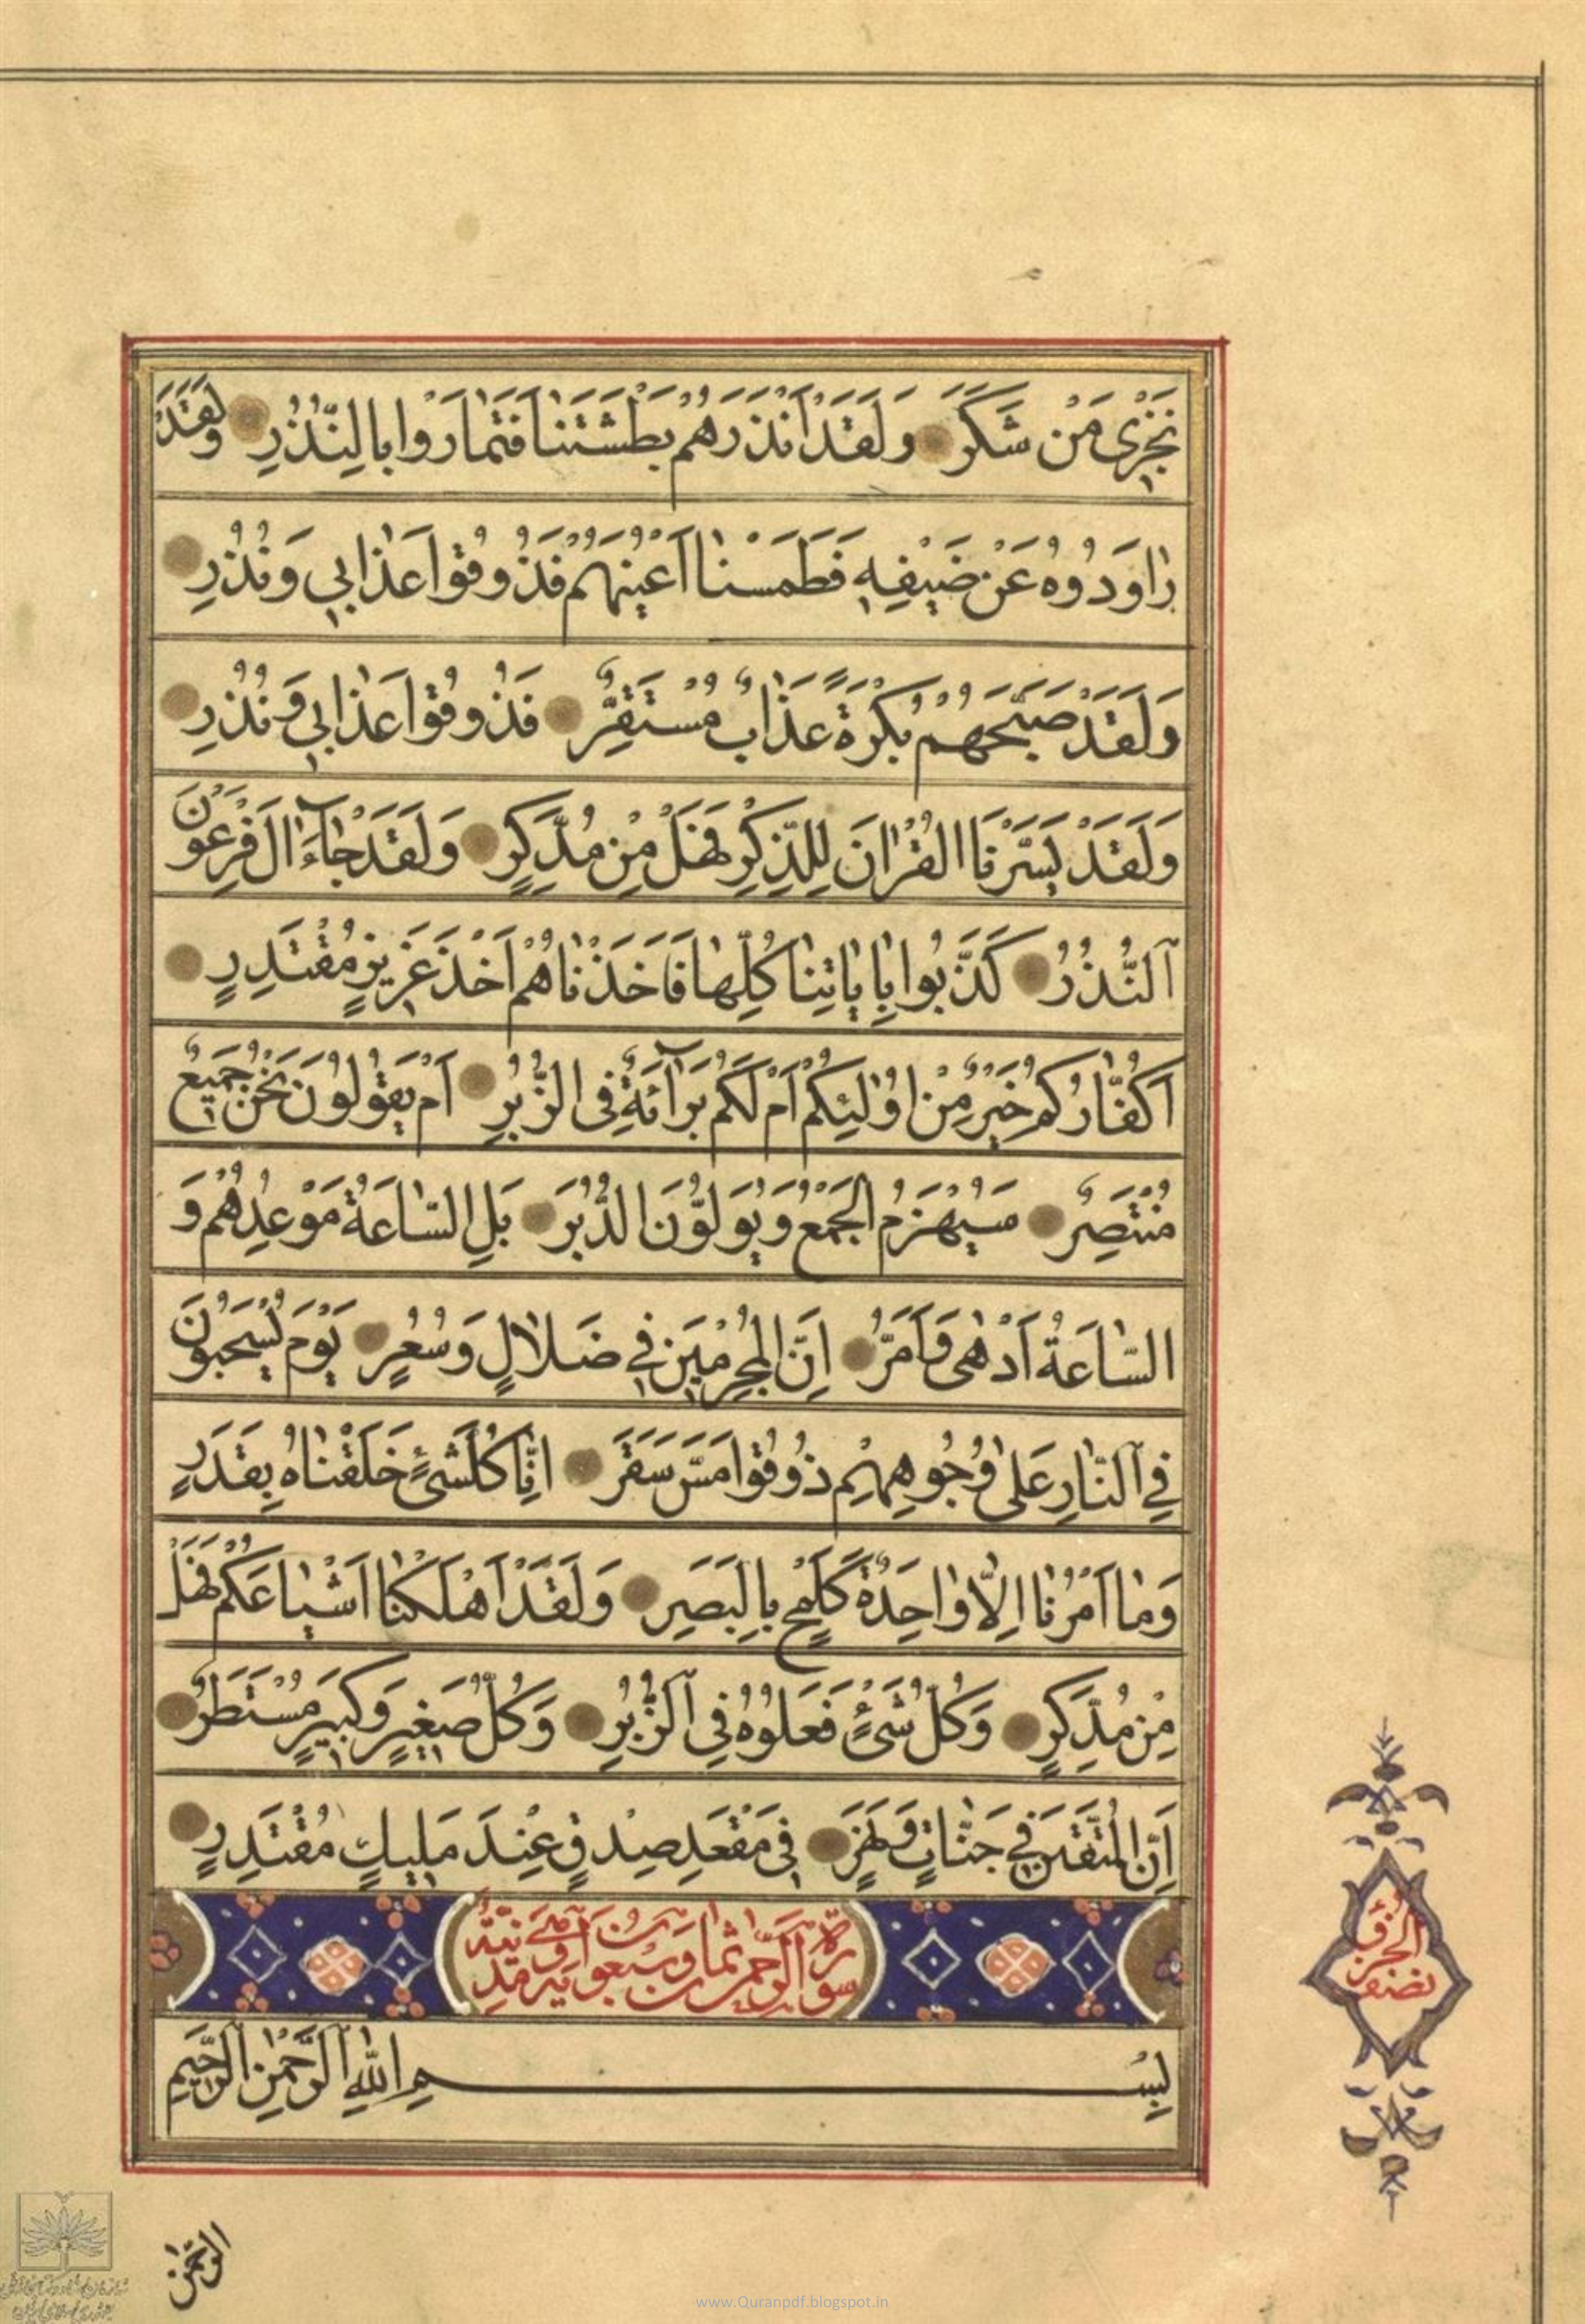 نَجْزِی مَنْ شَكَرَ وَلَقَدْ اَنْذَرَهُمْ بَطْشَتَنٰا فَتَمٰارَوْا بِالنُّذُرِ وَلَقَدْ
رٰاوَدُوهُ عَنْ ضَيْفِهِ فَطَمَسْنٰا اَعْيُنَهُمْ فَذُوقُوا عَذٰابِي وَنُذُرِ
وَلَقَدْ صَبَّحَهُمْ بُكْرَةً عَذٰابٌ مُسْتَقِرٌّ فَذُوقُوا عَذٰابِي وَنُذُرِ
وَلَقَدْ يَسَّرْنَا الْقُرْاٰنَ لِلذِّكْرِ فَهَلْ مِنْ مُدَّكِرٍ وَلَقَدْ جٰاءَ اٰلَ فِرْعَوْنَ
اَلنُّذُرُ كَذَّبُوا بِاٰيٰاتِنٰا كُلِّهٰا فَاَخَذْنٰاهُمْ اَخْذَ عَزِيزٍ مُقْتَدِرٍ
اَكُفّٰارُكُمْ خَيْرٌ مِنْ اُولٰئِكُمْ اَمْ لَكُمْ بَرٰائَةٌ فِی الزُّبُرِ اَمْ يَقُولُونَ نَحْنُ جَمِيعٌ
مُنْتَصِرٌ سَيُهْزَمُ الْجَمْعُ وَيُوَلُّونَ الدُّبُرَ بَلِ السّٰاعَةُ مَوْعِدُهُمْ وَ
السّٰاعَةُ اَدْهٰى وَاَمَرُّ اِنَّ الْمُجْرِمِينَ فِي ضَلاٰلٍ وَسُعُرٍ يَوْمَ يُسْحَبُونَ
فِي اَلنّٰارِ عَلٰى وُجُوهِهِمْ ذُوقُوا مَسَّ سَقَرَ اِنّٰا كُلَّ شَیْءٍ خَلَقْنٰاهُ بِقَدَرٍ
وَمٰا اَمْرُنٰا اِلاّٰ وٰاحِدَةٌ كَلَمْحٍ بِالْبَصَرِ وَلَقَدْ اَهْلَكْنٰا اَشْيٰاعَكُمْ فَهَلْ
مِنْ مُدَّكِرٍ وَكُلُّ شَیْءٍ فَعَلُوهُ فِي اَلزُّبُرِ وَكُلُّ صَغِيرٍ وَكَبِيرٍ مُسْتَطَرٌ
اِنَّ الْمُتَّقِينَ فِي جَنّٰاتٍ وَنَهَرٍ فِی مَقْعَدِ صِدْقٍ عِنْدَ مَلِيكٍ مُقْتَدِرٍ
سورة الرحمن ثمان وسبعون آية
بِسْمِ اللّٰهِ اَلرَّحْمٰنِ اَلرَّحِيمِ
نصف الحزب
الرحمن
www.Quranpdf.blogspot.in